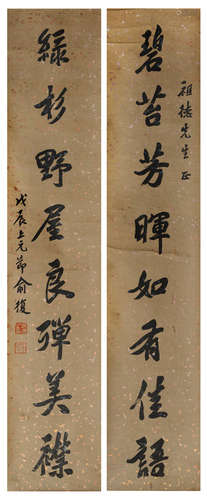 祖德先生正
碧苔芳暉如有佳語
綠杉野屋良殫美襟
戊辰上元節俞復